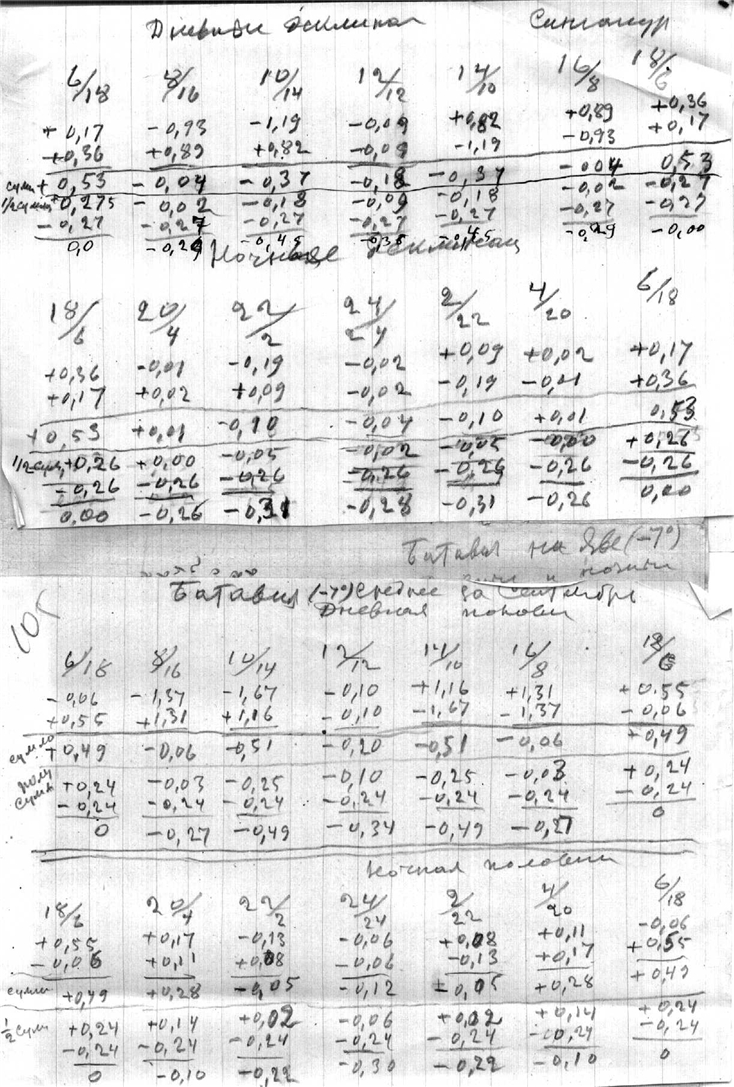 Дневная Сингапур
6/18 8/16 10/14 12/12 14/10 16/8 18/6
+0,17 -0,93 -1,19 -0,09 +0,82 +0,89 +0,36
+0,36 +0,89 +0,82 -0,09 -1,19 -0,93 +0,17
сумм + 0,53 -0,04 -0,37 -0,18 -0,37 -0,04 0,53
1/2 сумм +0,275 -0,02 -0,18 -0,09 -0,18 -0,02 -0,27
-0,27 -0,27 -0,27 -0,27 -0,27 -0,27 -0,27
0,0 -0,29 -0,45 -0,36 -0,45 -0,29 -0,00
Ночная
18/6 20/4 22/2 24/24 2/22 4/20 6/18
+0,36 -0,01 -0,19 -0,02 +0,09 +0,02 +0,17
+0,17 +0,02 +0,09 -0,02 -0,19 -0,01 +0,36
+0,53 +0,01 -0,10 -0,04 -0,10 +0,01 0,53
1/2 сумм +0,26 +0,00 -0,05 -0,02 -0,05 -0,00 +0,26
-0,26 -0,26 -0,26 -0,26 -0,26 -0,26 -0,26
0,00 -0,26 -0,31 -0,28 -0,31 -0,26 0,00
Батавия на Яве (-7°)
Батавия (-7°) Среднее за Сентябрь
Дневная половин
6/18 8/16 10/14 12/12 14/10 16/8 18/6
-0,06 -1,37 -1,67 -0,10 +1,16 +1,31 +0.55
+0,55 +1,31 +1,16 -0,10 -1,67 -1,37 -0,06
сумма +0,49 -0,06 -0,51 -0,20 -0,51 -0,06 +0,49
полу сумма +0,24 -0,03 -0,25 -0,10 -0,25 -0,03 +0,24
-0,24 -0,24 -0,24 -0,24 -0,24 -0,24 -0,24
0 -0,27 -0,49 -0,34 -0,49 -0,27 0
Ночная половин
18/6 20/4 22/2 24/24 2/22 4/20 6/18
+0,55 +0,17 -0,13 -0,06 +0,08 +0,11 -0,06
-0,06 +0,11 +0,08 -0,06 -0,13 +0,17 +0,55
сумм +0,49 +0,28 -0,05 -0,12 ±0,05 +0,28 +0,49
1/2 сумм +0,24 +0,14 +0,02 -0,06 +0,02 +0,14 +0,24
-0,24 -0,24 -0,24 -0,24 -0,24 -0,24 -0,24
0 -0,10 -0,22 -0,30 -0,22 -0,10 0